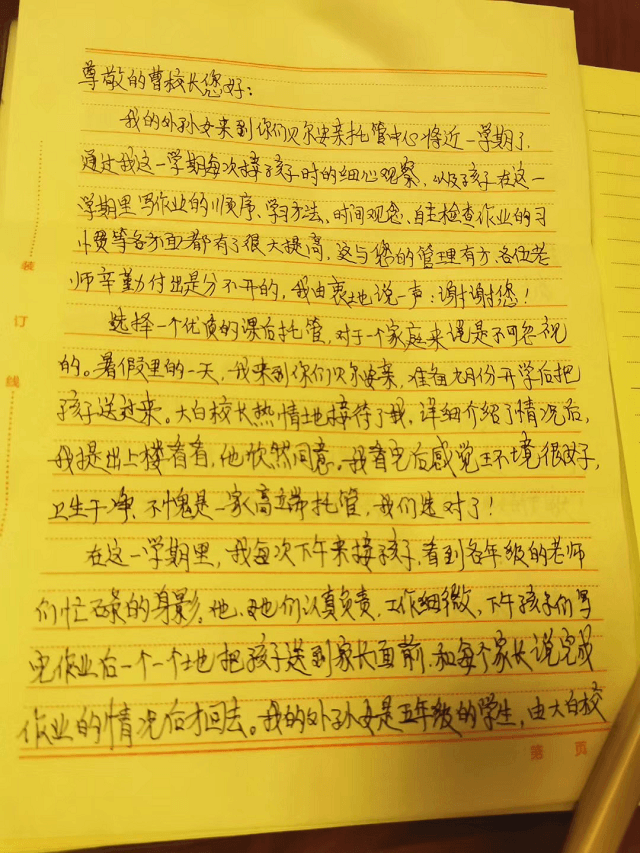 尊敬的曹校长您好:
我的外孙女来到你们贝尔安亲托管中心将近一学期了,
通过我这一学期每次接孩子时的细心观察,以及孩子在这一
学期里写作业的顺序、学习方法、时间观念、自主检查作业的习
惯等各方面都有了很大提高,这与您的管理有方,各位老
师辛勤付出是分不开的,我由衷地说一声:谢谢您!
选择一个优质的课后托管,对于一个家庭来说是不可忽视
的。暑假里的一天,我来到你们贝尔安亲,准备九月份开学后把
孩子送过来。大白校长热情地接待了我,详细介绍了情况后,
我提出上楼看看,他欣然同意。我看完后感觉环境很好,
卫生干净,不愧是一家高端托管,我们选对了!
在这一学期里,我每次下午来接孩子,看到各年级的老师
们忙碌的身影。他、她们认真负责,工作细微,下午孩子们写
完作业后一个一个地把孩子送到家长面前,和每个家长说完成
作业的情况后才回去。我的外孙女是五年级的学生,由大白校
第 页
装
订
线